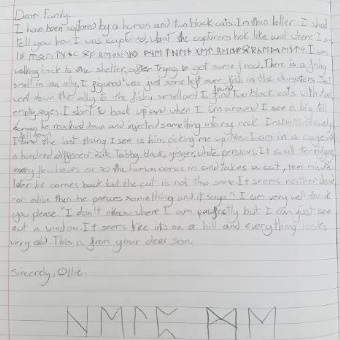 Dear Family,
I have been captured by a human and two black cats. In this letter I shall
tell you how I was captured, what the capturers look like and where I am
I was
walking back to the shelter, after trying to get some food. There is a fishy
smell in my ally, I figured was just some left over fish in the dumpsters. I
went down the ally to the fishy smell and I found two black cats with
empty eyes. I start to back up and when I turn around I see a big tall
human he reached down and injected something into my neck. Instantly
I fall down the last thing I see is him picking me up. Now I am in a cage with
a hundred different cats. Tabby, black, ginger, white persians. It is all terrifying
every few hours or so the human comes in and takes a cat, ten minutes
later he comes back but the cat is not the same It seems neither dead
or alive then he something and it says "I am very well thank
you please." I don't know where I am perfectly but I can just see
out a window. It seems like its on a hill and everything looks
very old. This is from your dear son.
Sincerely, Ollie.
ᚺᛖᛚᛈ ᛗᛖ